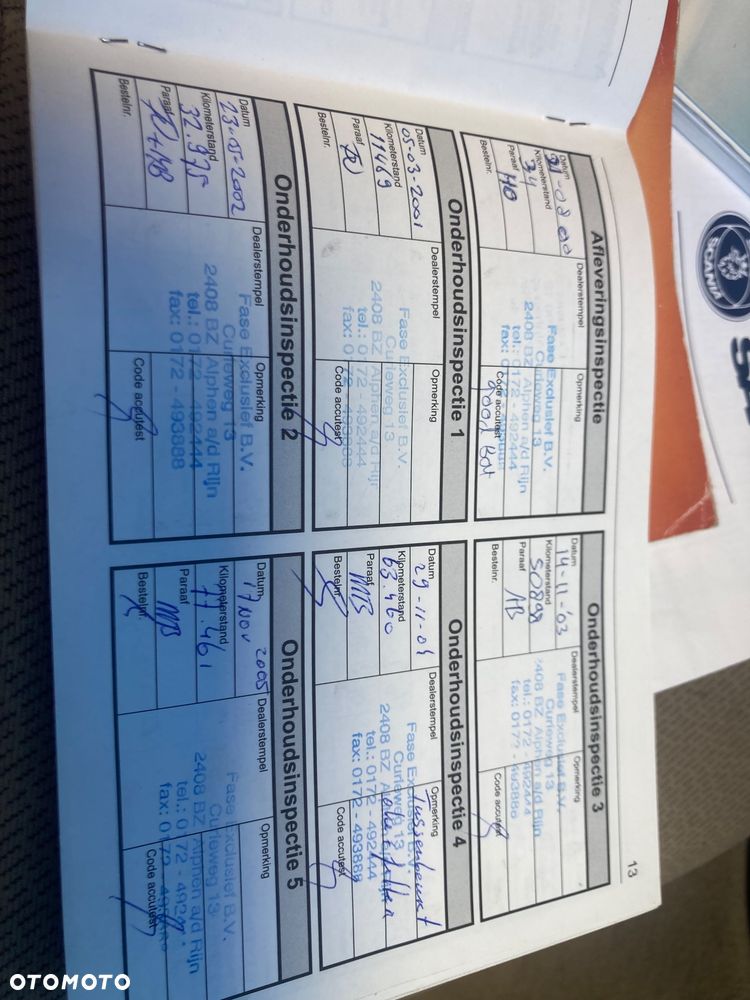 13
Afleveringsinspectie
Datum
-08-00
Kilometerstand
34
Paraaf
HO
Bestelnr.
Dealerstempel
Fase Exclusief B.V.
Curieweg 13
2408 BZ Alphen a/d Rijn
tel.: 0172 - 492444
fax:
Opmerking
Code accutest
good
Onderhoudsinspectie 1
Datum
05-03-2001
Kilometerstand
11469
Paraaf
Bestelnr.
Dealerstempel
Fase Exclusief B.V.
Curieweg 13
2408 BZ Alphen a/d Rijn
tel.: 0172 - 492444
fax: 0172 - 493888
Opmerking
Code accutest
Onderhoudsinspectie 2
Datum
13-05-2002
Kilometerstand
32.975
Paraaf
Bestelnr.
Dealerstempel
Fase Exclusief B.V.
Curieweg 13
2408 BZ Alphen a/d Rijn
tel.: 0172 - 492444
fax: 0172 - 493888
Opmerking
Code accutest
Onderhoudsinspectie 3
Datum
14-11-'03
Kilometerstand
50898
Paraaf
AB
Bestelnr.
Dealerstempel
Fase Exclusief B.V.
Curieweg 13
2408 BZ Alphen a/d Rijn
tel.: 0172 - 492444
fax: 0172 - 493888
Opmerking
Code accutest
Onderhoudsinspectie 4
Datum
29-11-04
Kilometerstand
63.460
Paraaf
MB
Bestelnr.
Dealerstempel
Fase Exclusief B.V.
Curieweg 13
2408 BZ Alphen a/d Rijn
tel.: 0172 - 492444
fax: 0172 - 493888
Opmerking
Tussenbeurt
Code accutest
Onderhoudsinspectie 5
Datum
17 Nov 2005
Kilometerstand
77.461
Paraaf
MB
Bestelnr.
Dealerstempel
Fase Exclusief B.V.
Curieweg 13
2408 BZ Alphen a/d Rijn
tel.: 0172 - 4924
fax: 0172 -
Opmerking
Code accutest
SCANIA
OTOMOTO